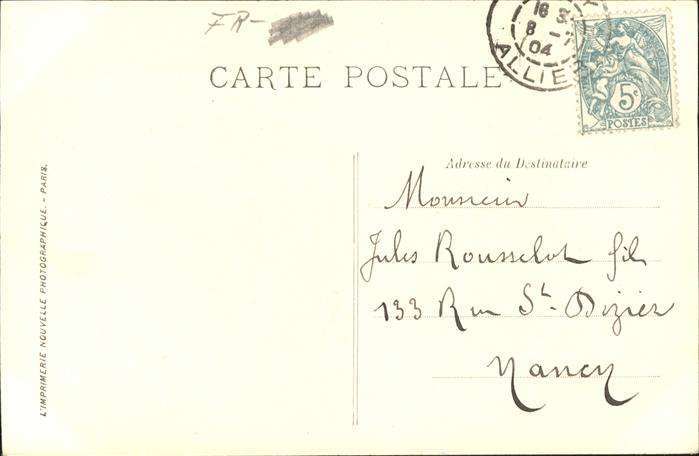 FR-
CARTE POSTALE
16
8 - 7
04
ALLIER
5c
POSTES
Adresse du Destinataire
Monsieur
Jules Rousselot fils
133 Rue St. Dizier
Nancy
L'IMPRIMERIE NOUVELLE PHOTOGRAPHIQUE. - PARIS.